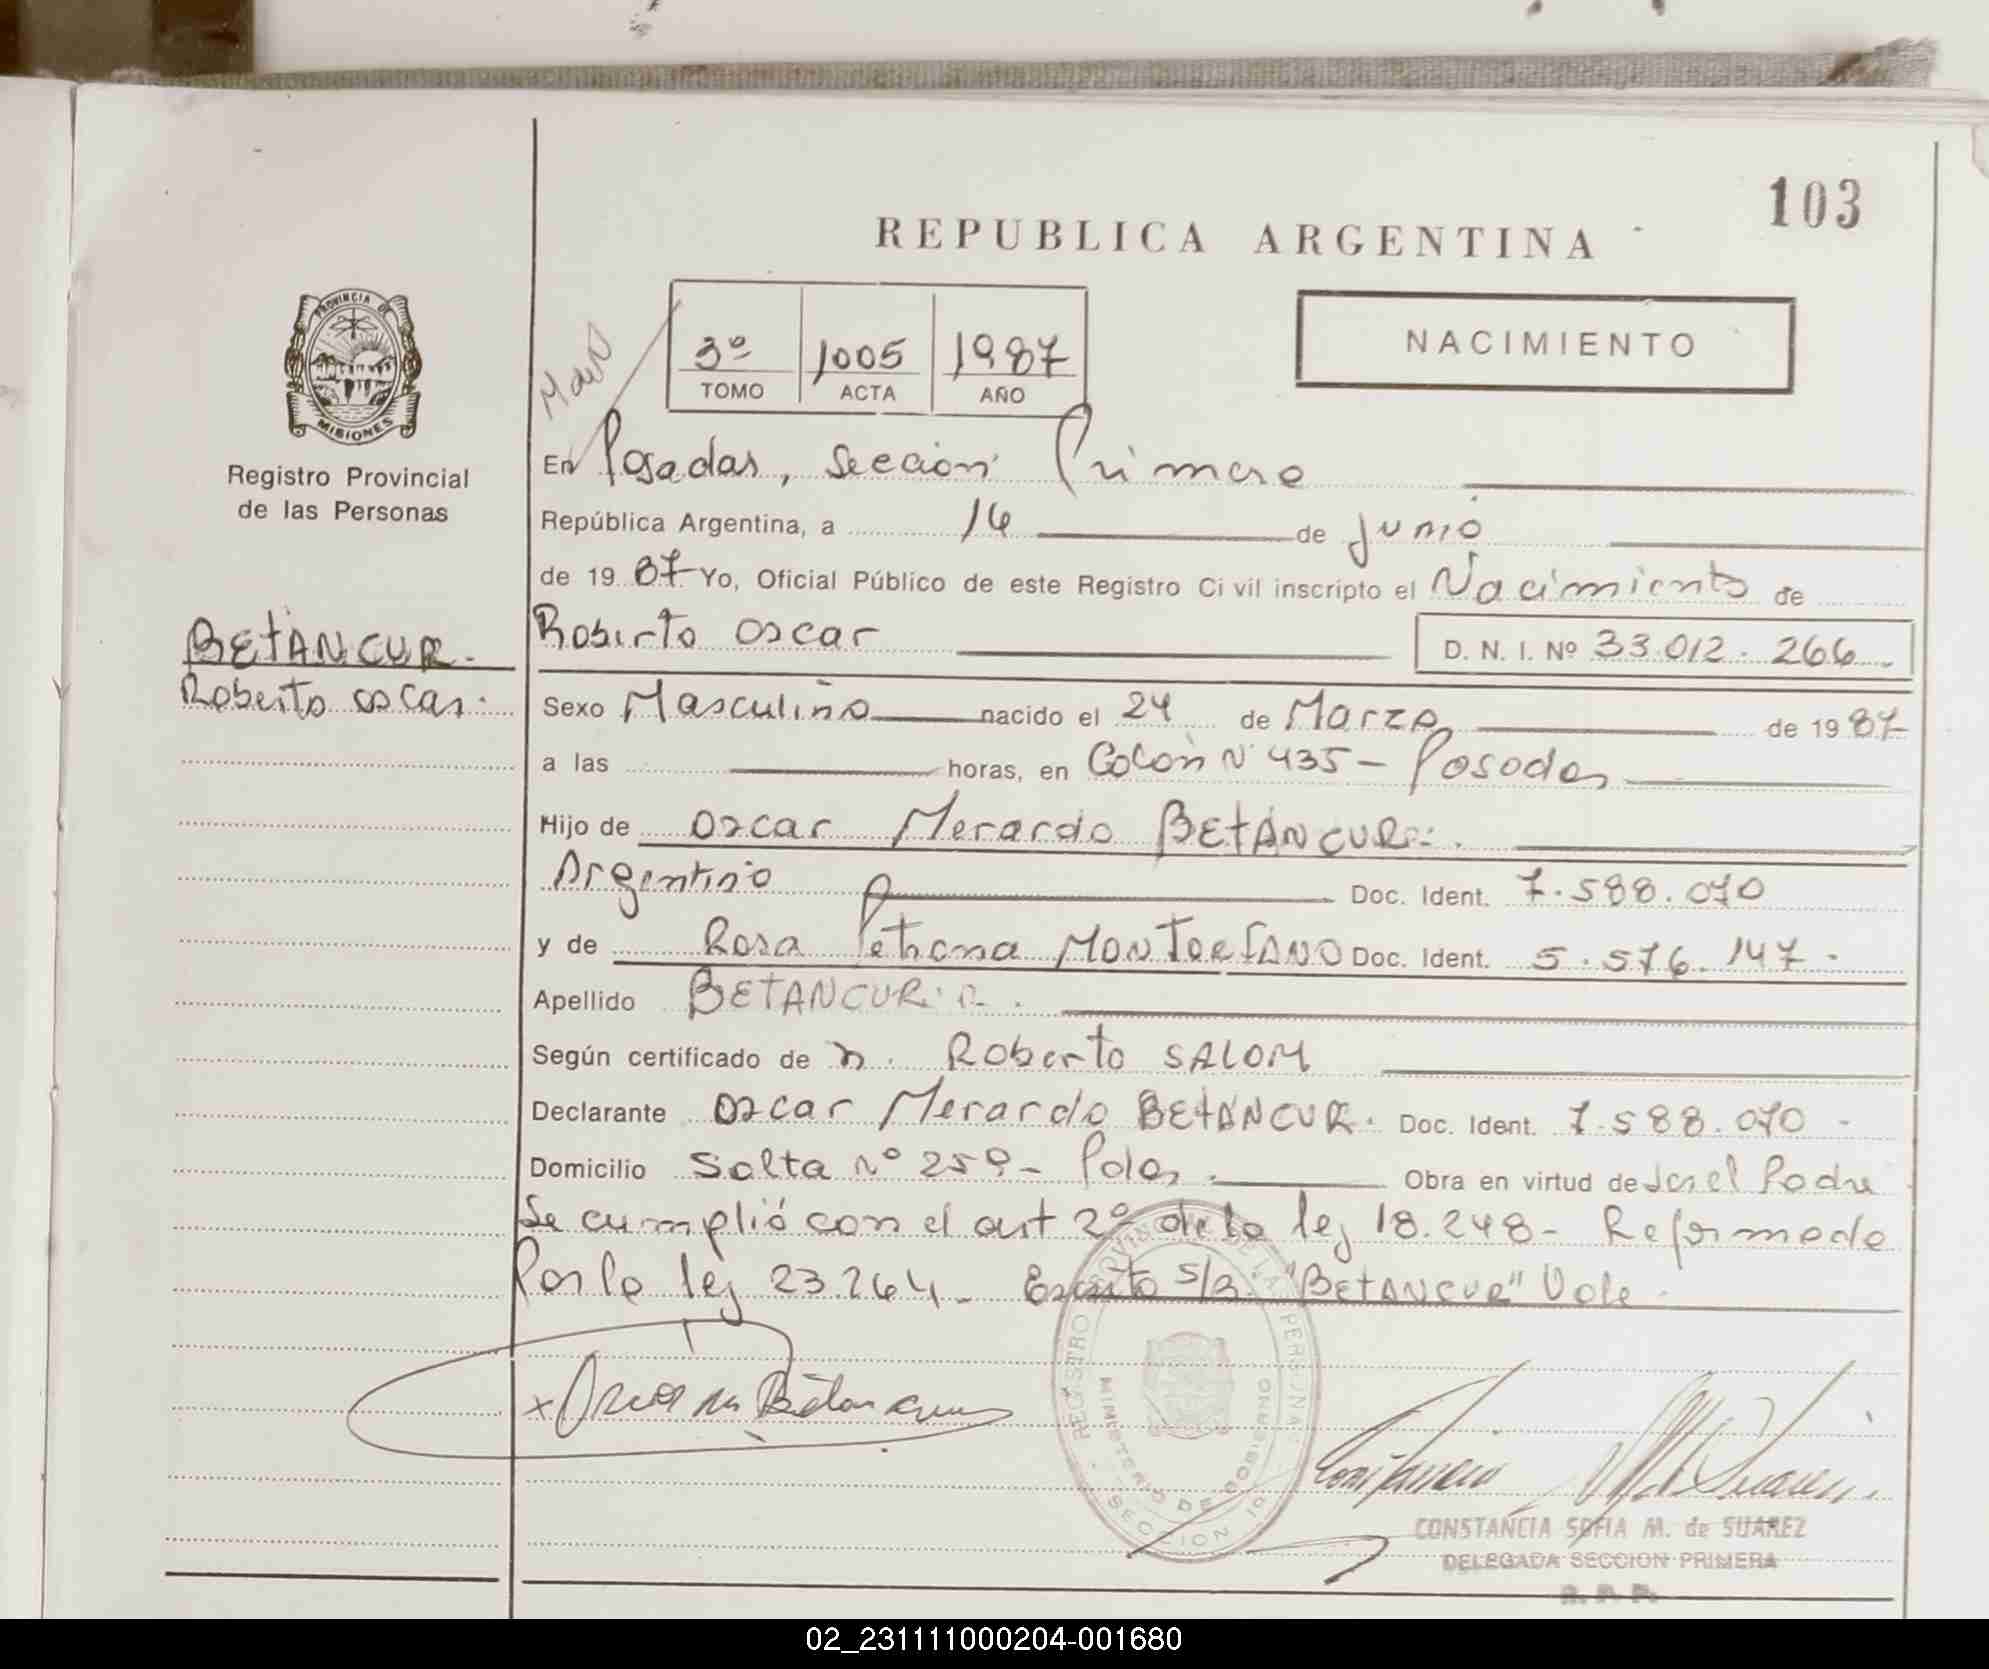 103
REPUBLICA ARGENTINA
NACIMIENTO
3º 1005 1987
TOMO ACTA AÑO
PROVINCIA DE
MISIONES
Registro Provincial
de las Personas
BETANCUR.
Roberto oscar.
En Posadas, Sección Primera
República Argentina, a 16 de Junio
de 19 87 Yo, Oficial Público de este Registro Civil inscripto el Nacimiento de
Roberto oscar D. N. I. Nº 33.012.266
Sexo Masculino nacido el 24 de Marzo de 1987
a las horas, en Colón Nº 435 - Posadas
Hijo de oscar Merardo BETANCUR.
Argentino Doc. Ident. 7.588.070
y de Rosa Petrona MONTORFANO Doc. Ident. 5.576.147.
Apellido BETANCUR
Según certificado de n. Roberto SALOM
Declarante oscar Merardo BETANCUR. Doc. Ident. 7.588.070 -
Domicilio Salta nº 259 - Pdas. Obra en virtud de ser el Padre
Se cumplió con el art 2º de la ley 18.248 - Reformada
Por la ley 23.264 - Escrito s/r. "BETANCUR" Vale
REGISTRO PROVINCIAL DE LAS PERSONAS
MINISTERIO DE GOBIERNO
SECCION 1º
CONSTANCIA SOFIA M. de SUAREZ
DELEGADA SECCION PRIMERA
R. P. P.
02_231111000204-001680